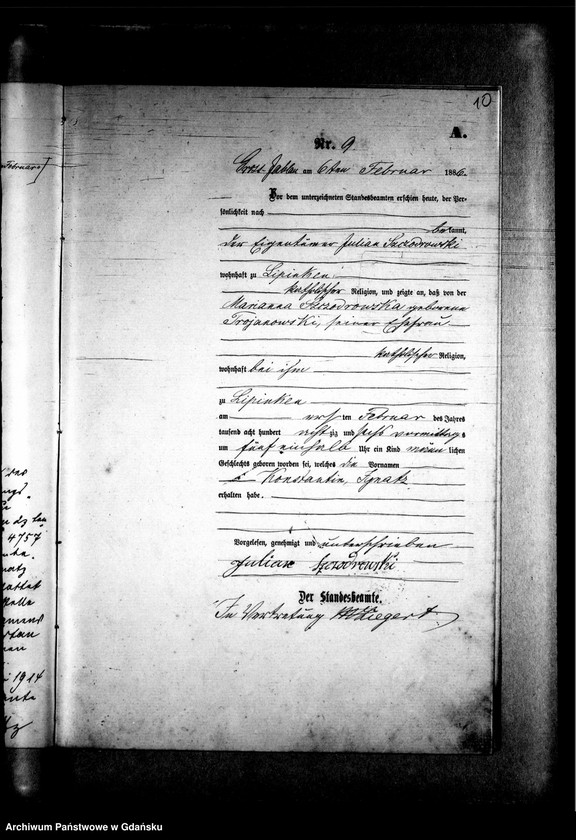 Februar
4757
1914
10
A.
Nr. 9
Gross Jablau am 6ten Februar 1886.
Vor dem unterzeichneten Standesbeamten erschien heute, der Per-
sönlichkeit nach
bekannt,
der Eigentümer Julian Szczodrowski
wohnhaft zu Lipinken
katholischer Religion, und zeigte an, daß von der
Marianna Szczodrowska geborene
Trojanowski, seiner Ehefrau
katholischer Religion,
wohnhaft bei ihm
zu Lipinken
am ersten Februar des Jahres
tausend acht hundert achtzig und sechs vormittags
um fünf einhalb Uhr ein Kind männlichen
Geschlechts geboren worden sei, welches die Vornamen
Konstantin, Ignatz
erhalten habe.
Vorgelesen, genehmigt und unterschrieben
Julian Szczodrowski
Der Standesbeamte.
In Vertretung Ziegert
Archiwum Państwowe w Gdańsku